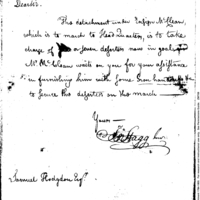 Dear Sir.
The detachment under Ensign McClean,
which is to march to Head Quarters, is to take
charge of or seven deserters now in goal
Mr. McClean waits on you for your assistance
in furnishing him with some Iron hand
to secure the deserters on the march
Yours
J. Stagg Jun
Samuel Hodgdon Esqr.